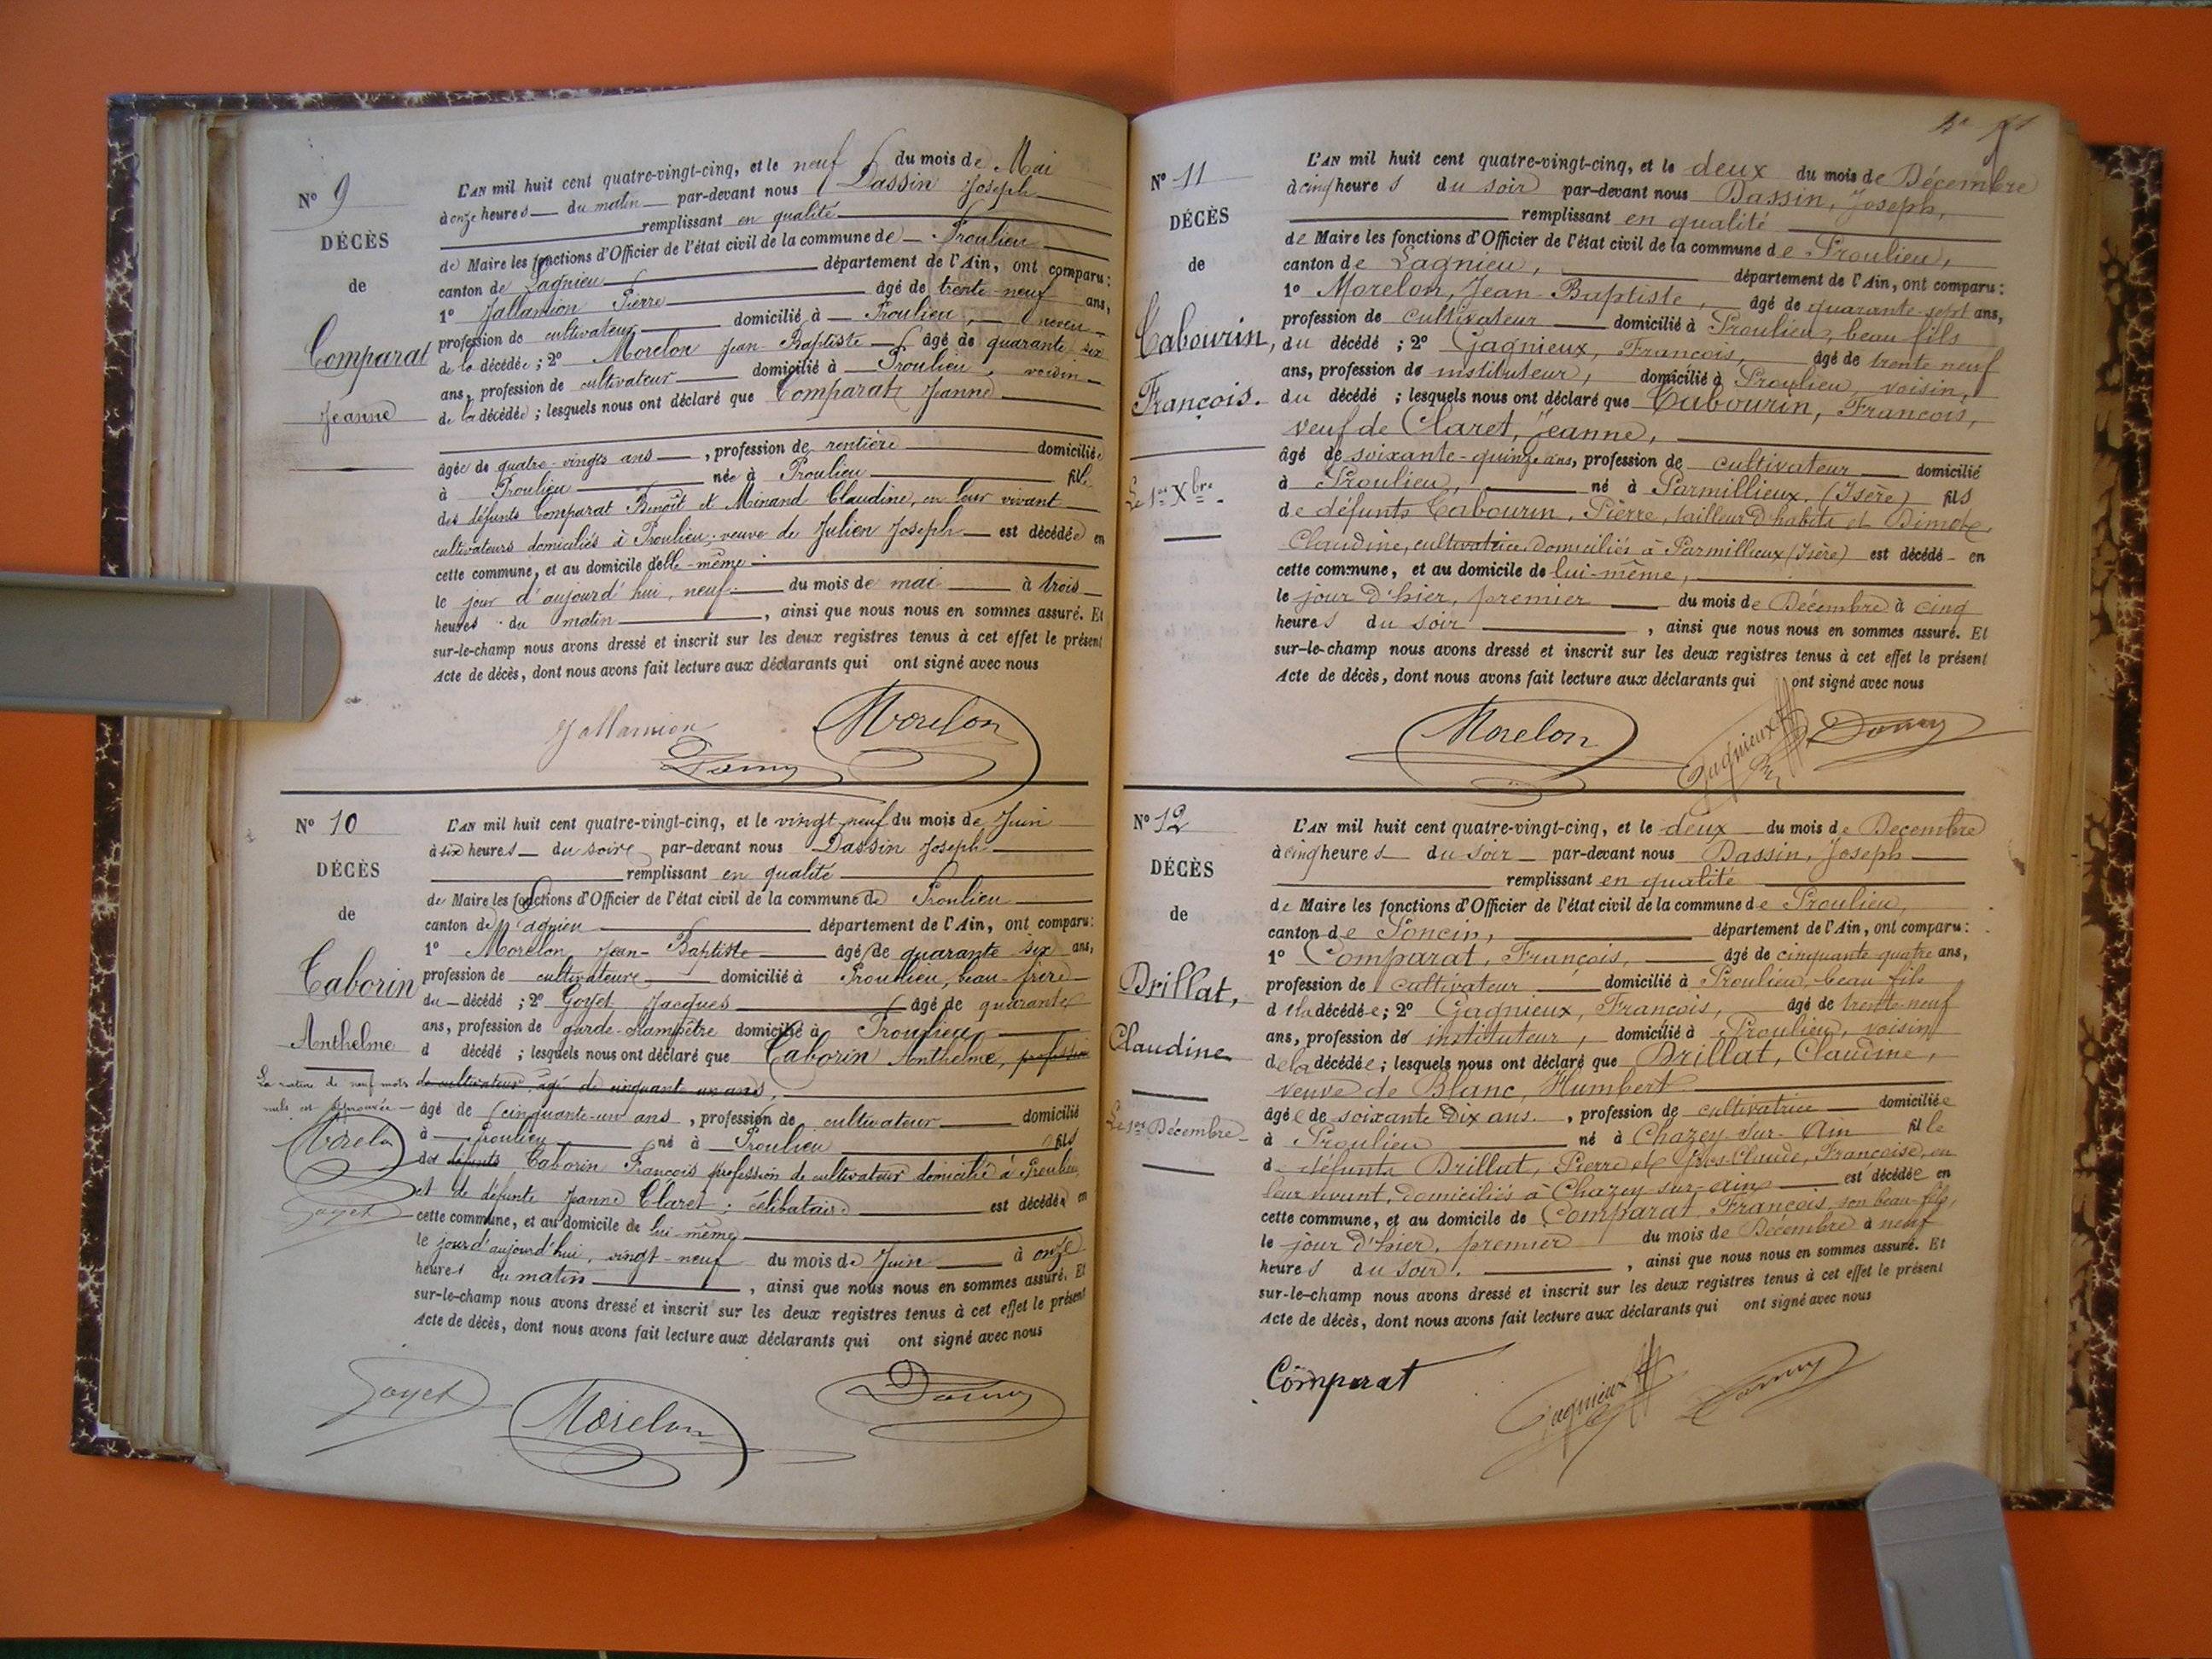 N° 9
DÉCÈS
de
Comparat
Jeanne
L'AN mil huit cent quatre-vingt-cinq, et le neuf du mois de Mai
à onze heures du matin par-devant nous Dassin Joseph
remplissant en qualité
de Maire les fonctions d'Officier de l'état civil de la commune de Proulieu
canton de Lagnieu département de l'Ain, ont comparu:
1° Jallamion Pierre âgé de trente-neuf ans,
profession de cultivateur domicilié à Proulieu, neveu
de la décédée; 2° Morelon Jean-Baptiste âgé de quarante six
ans, profession de cultivateur domicilié à Proulieu, voisin
de la décédée; lesquels nous ont déclaré que Comparat Jeanne
âgée de quatre-vingts ans, profession de rentière domiciliée
à Proulieu née à Proulieu fille
des défunts Comparat Benoît et Minand Claudine, en leur vivant
cultivateurs domiciliés à Proulieu; veuve de Julien Joseph est décédée en
cette commune, et au domicile d'elle-même
le jour d'aujourd'hui, neuf du mois de mai à trois
heures du matin, ainsi que nous nous en sommes assuré. Et
sur-le-champ nous avons dressé et inscrit sur les deux registres tenus à cet effet le présent
Acte de décès, dont nous avons fait lecture aux déclarants qui ont signé avec nous
Jallamion Morelon
N° 10
DÉCÈS
de
Caborin
Anthelme
La rature de neuf mots
nuls est approuvée
Morelon
Goyet
L'AN mil huit cent quatre-vingt-cinq, et le vingt neuf du mois de Juin
à six heures du soire par-devant nous Dassin Joseph
remplissant en qualité
de Maire les fonctions d'Officier de l'état civil de la commune de Proulieu
canton de Lagnieu département de l'Ain, ont comparu:
1° Morelon Jean-Baptiste âgé de quarante six ans,
profession de cultivateure domicilié à Proulieu, beau-frère
du décédé; 2° Goyet Jacques âgé de quarante
ans, profession de garde-champêtre domicilié à Proulieu
d décédé; lesquels nous ont déclaré que Caborin Anthelme, profession
de cultivateur âgé de cinquant un ans,
âgé de cinquante-un ans, profession de cultivateur domicilié
à Proulieu né à Proulieu fils
des défunts Caborin François profession de cultivateur domicilié à Proulieu
et de défunte Jeanne Claret; célibataire est décédé en
cette commune, et au domicile de lui-même
le jour d'aujourd'hui, vingt-neuf du mois de Juin à onze
heures du matin, ainsi que nous nous en sommes assuré. Et
sur-le-champ nous avons dressé et inscrit sur les deux registres tenus à cet effet le présent
Acte de décès, dont nous avons fait lecture aux déclarants qui ont signé avec nous
Goyet Morelon
N° 11
DÉCÈS
de
Cabourin,
François.
Le 1er Xbre
L'AN mil huit cent quatre-vingt-cinq, et le deux du mois de Décembre
à cinq heures du soir par-devant nous Dassin, Joseph,
remplissant en qualité
de Maire les fonctions d'Officier de l'état civil de la commune de Proulieu,
canton de Lagnieu, département de l'Ain, ont comparu:
1° Morelon, Jean-Baptiste, âgé de quarante-sept ans,
profession de cultivateur domicilié à Proulieu, beau-fils
du décédé; 2° Gagnieux, François, âgé de trente neuf
ans, profession de instituteur, domicilié à Proulieu voisin,
du décédé; lesquels nous ont déclaré que Cabourin, François,
veuf de Claret, Jeanne,
âgé de soixante-quinze ans, profession de cultivateur domicilié
à Proulieu, né à Parmillieux, (Isère) fils
de défunts Cabourin, Pierre, tailleur d'habits et Dimote,
Claudine, cultivatrice domiciliés à Parmillieux (Isère) est décédé en
cette commune, et au domicile de lui-même,
le jour d'hier, premier du mois de Décembre à cinq
heures du soir, ainsi que nous nous en sommes assuré. Et
sur-le-champ nous avons dressé et inscrit sur les deux registres tenus à cet effet le présent
Acte de décès, dont nous avons fait lecture aux déclarants qui ont signé avec nous
Morelon Gagnieux
N° 12
DÉCÈS
de
Drillat,
Claudine
Le 1er Décembre
L'AN mil huit cent quatre-vingt-cinq, et le deux du mois de Decembre
à cinq heures du soir par-devant nous Dassin, Joseph
remplissant en qualité
de Maire les fonctions d'Officier de l'état civil de la commune de Proulieu,
canton de Poncin, département de l'Ain, ont comparu:
1° Comparat, François, âgé de cinquante quatre ans,
profession de cultivateur domicilié à Proulieu, beau-fils
de la décédée; 2° Gagnieux, François, âgé de trente-neuf
ans, profession de instituteur, domicilié à Proulieu, voisin
de la décédée; lesquels nous ont déclaré que Drillat, Claudine,
veuve de Blanc, Humbert
âgée de soixante dix ans, profession de cultivatrice domiciliée
à Proulieu né à Chazey-sur-Ain fille
d défunts Drillat, Pierre et Claude, Françoise, en
leur vivant, domiciliés à Chazey-sur-Ain est décédée en
cette commune, et au domicile de Comparat, François, son beau-fils,
le jour d'hier, premier du mois de Décembre à neuf
heures du soir, ainsi que nous nous en sommes assuré. Et
sur-le-champ nous avons dressé et inscrit sur les deux registres tenus à cet effet le présent
Acte de décès, dont nous avons fait lecture aux déclarants qui ont signé avec nous
Comparat Gagnieux